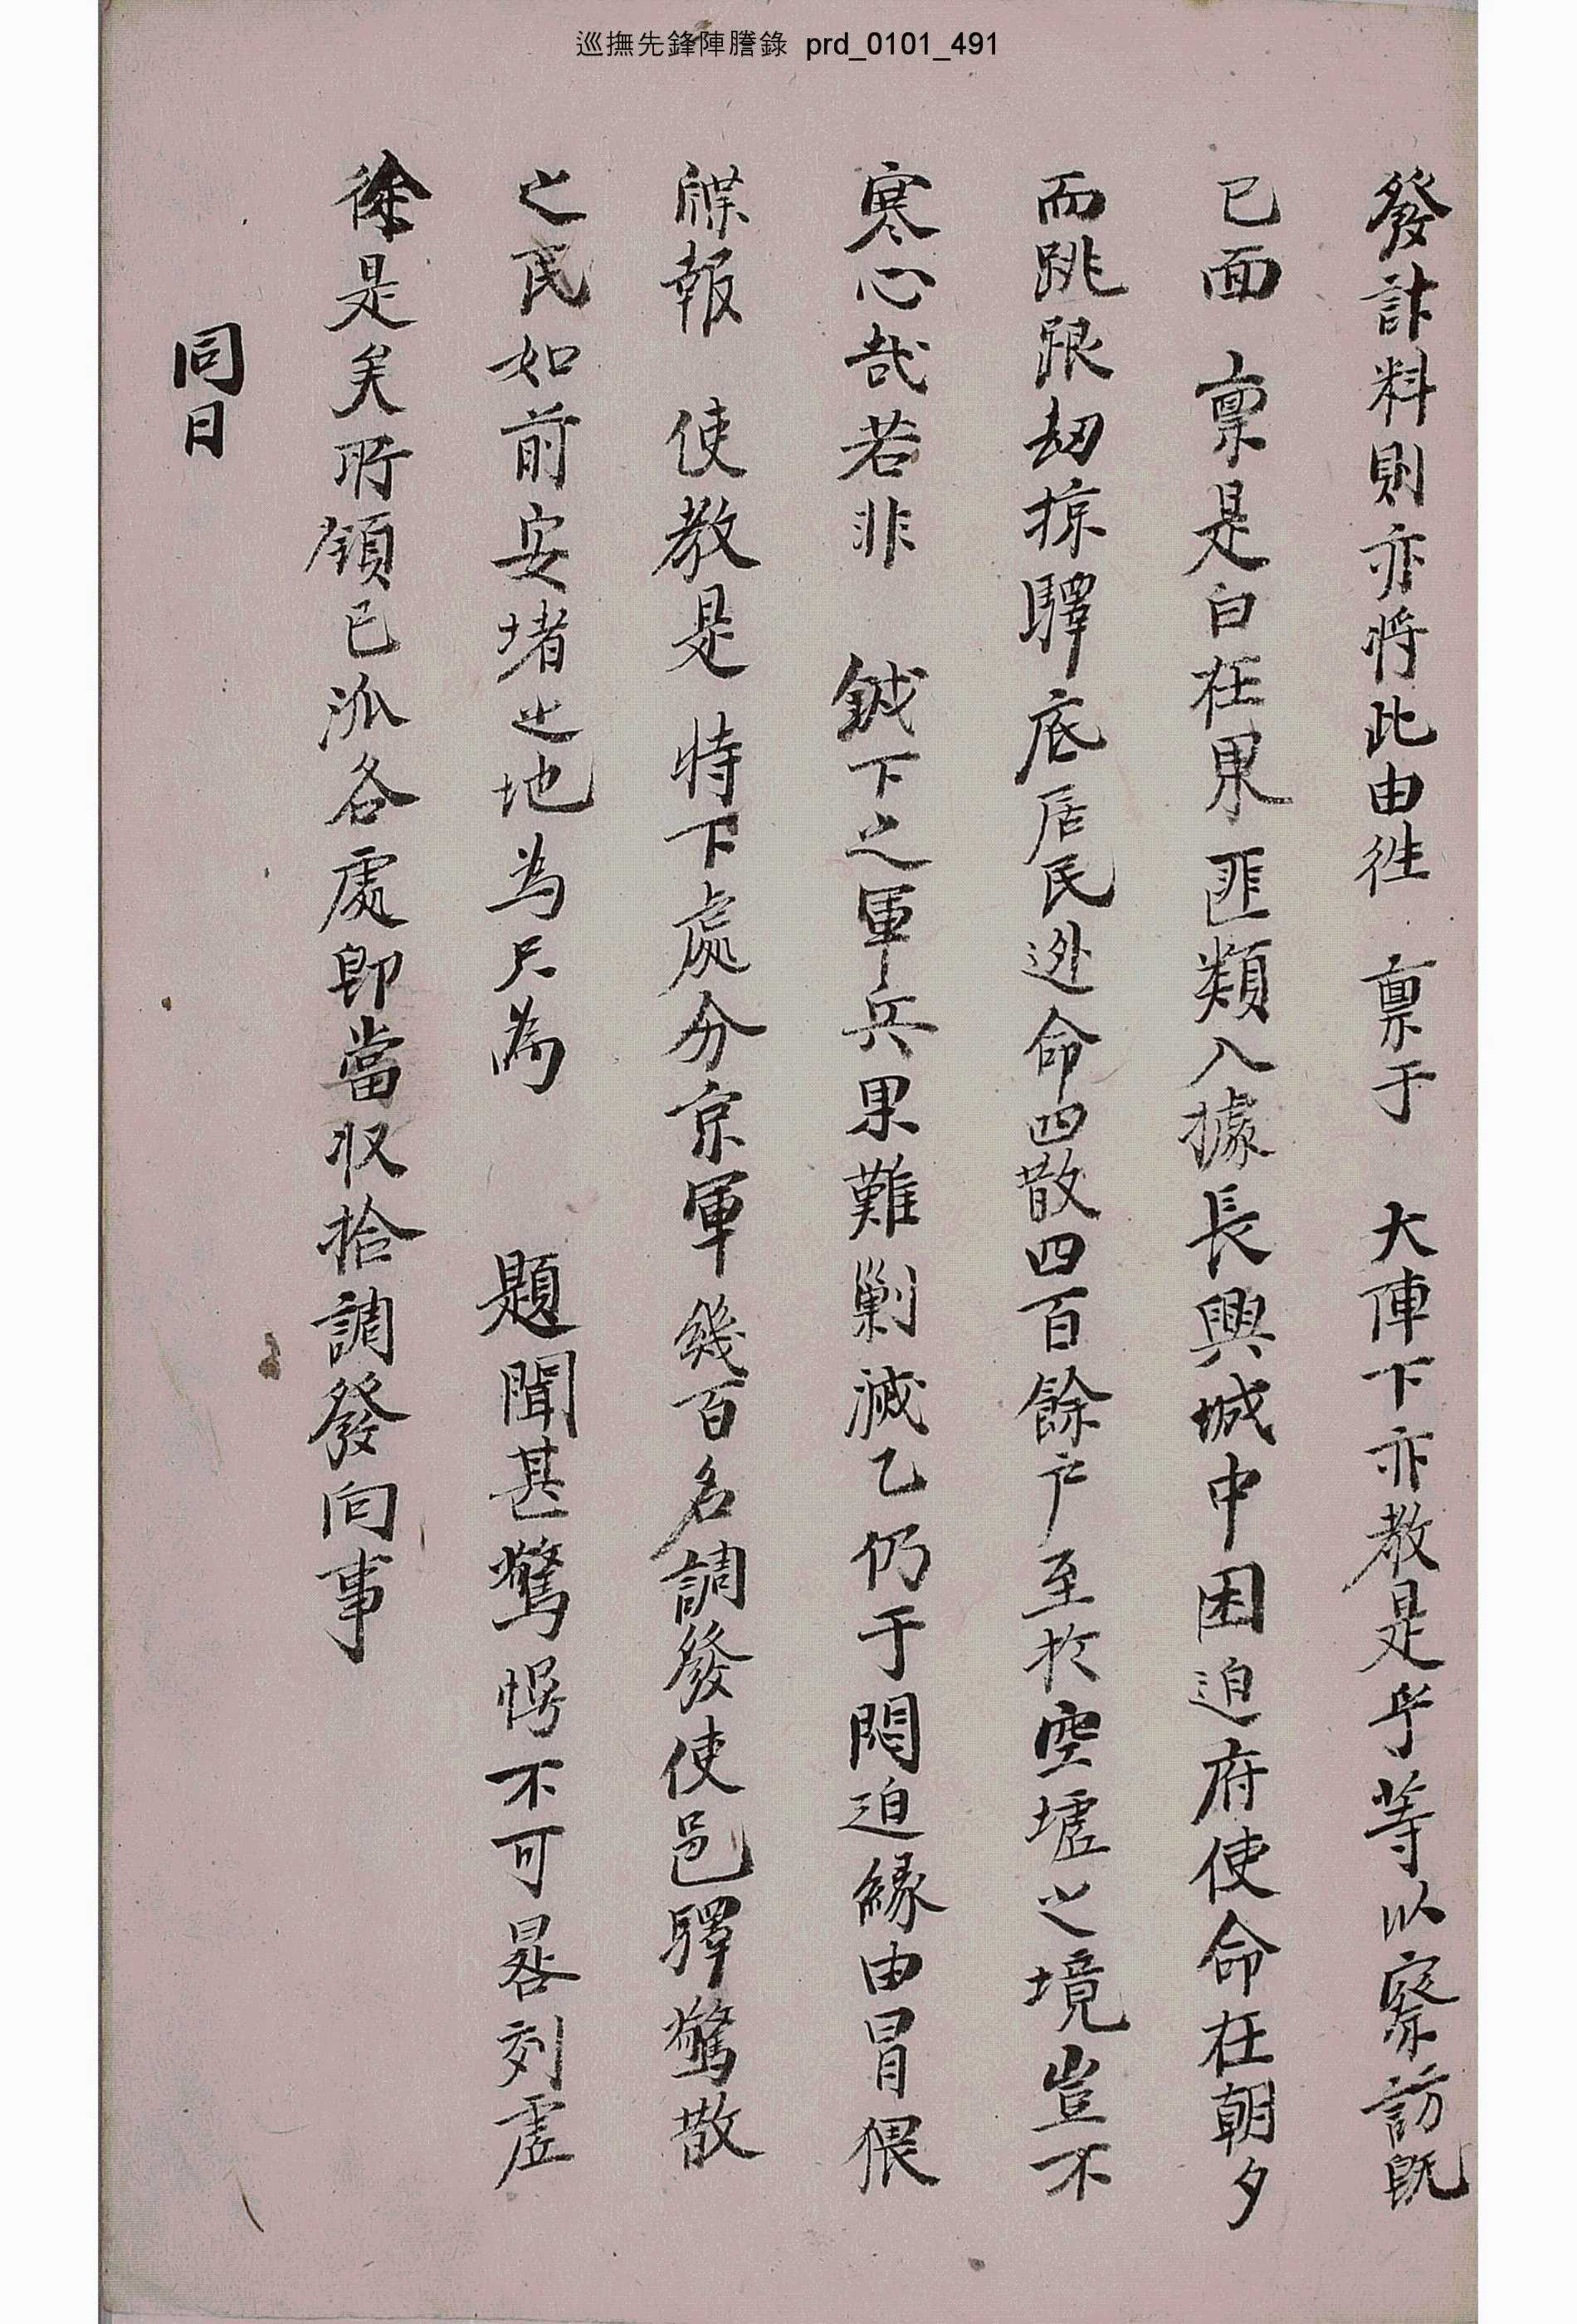 巡撫先鋒陣謄錄 prd_0101_491
發計料則亦將此由徃 禀于 大陣下亦教是乎等以察訪旣
已面 禀是白在果匪類入據長興城中困迫府使命在朝夕
而跳踉刼掠驛底居民逃命四散四百餘戶至於空墟之境豈不
寒心哉若非 鉞下之軍兵果難剿滅乙仍于悶迫緣由冒猥
牒報 使敎是 特下處分京軍幾百名調發使邑驛驚散
之民如前安堵之地爲只爲 題聞甚驚愕不可晷刻虛
徐是矣所領已派各處卽當收拾調發向事
同日